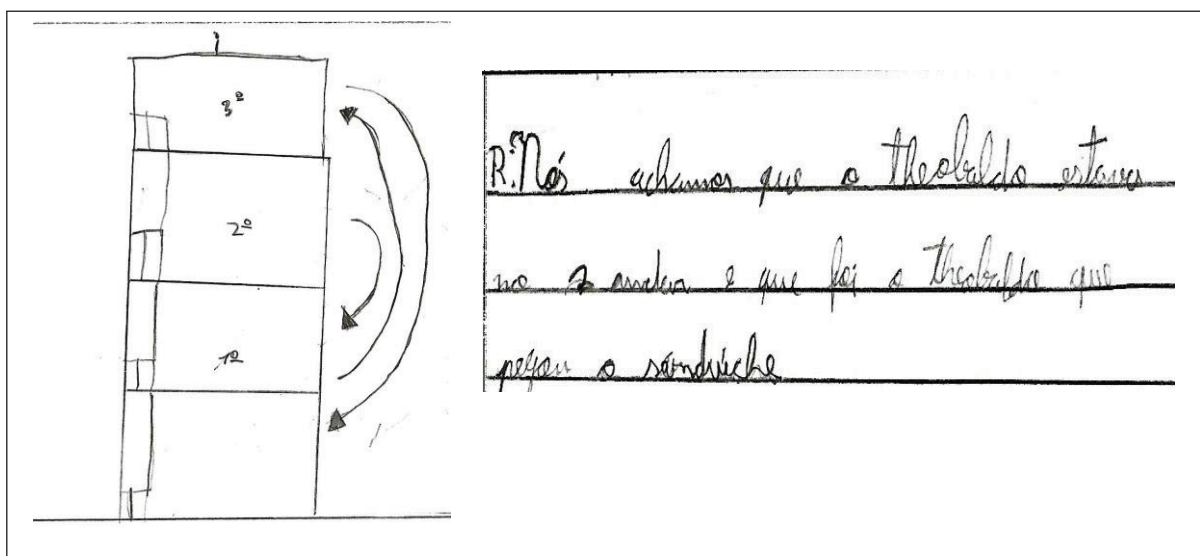 3º
2º
1º
R: Nós achamos que o theobaldo estava
no 2 andar e que foi o theobaldo que
pegou o sanduiche